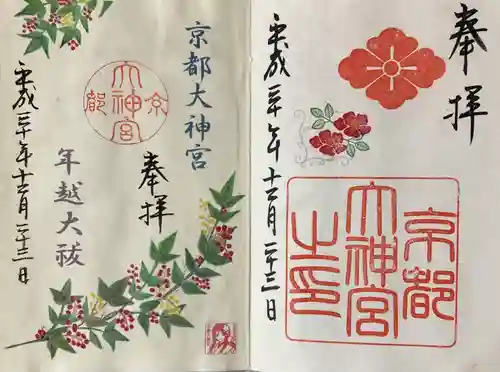 奉拝
京都
大神宮
之印
平成三十年十二月二十三日
京都大神宮
京都
大神宮
奉拝
年越大祓
平成三十年十二月二十三日